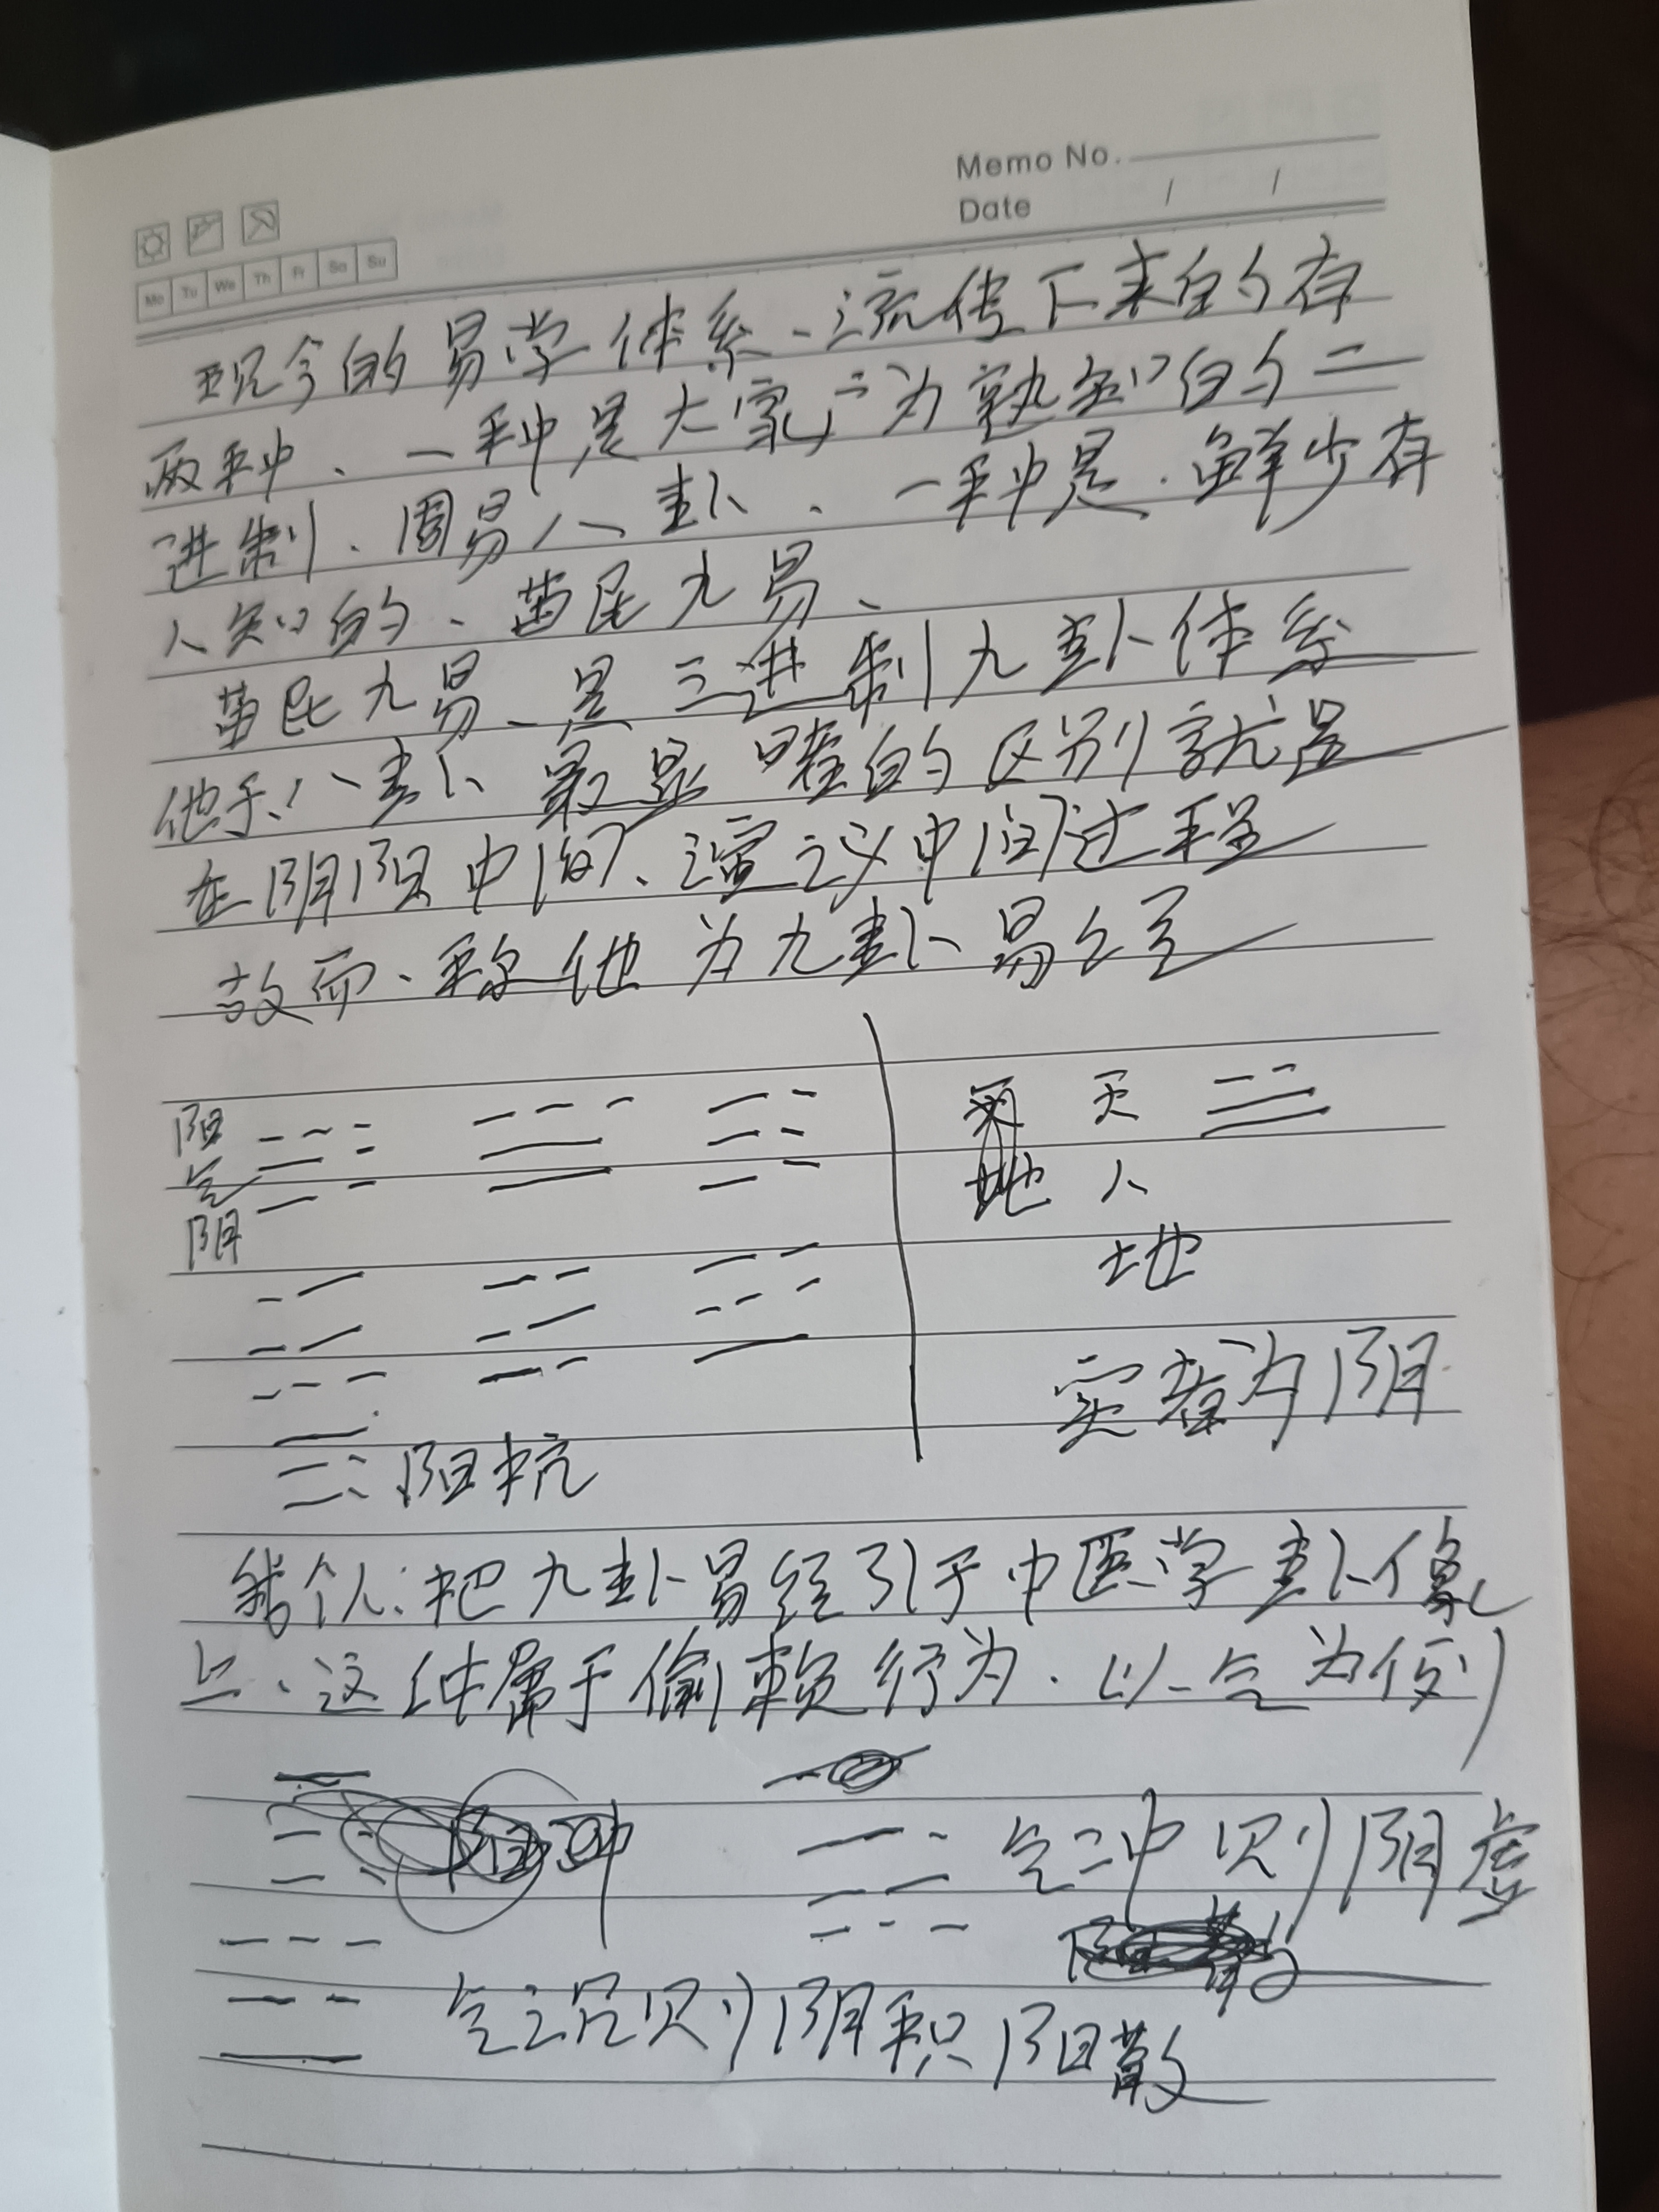 Memo No.
Date / /
Mo Tu We Th Fr Sa Su
现今的易学体系、流传下来的有
两种、一种是大家广为熟知的二
进制、周易八卦、一种是、鲜少有
人知的、苗民九易、
苗民九易、是三进制九卦体系
他于八卦最显著的区别就是
在阴阳中间、演议中间过程
故而、称他为九卦易经
阳
气
阴
天
地 人
地
实者为阴
阳抗
我个人:把九卦易经引于中医学卦像
上、这种属于偷赖行为、以气为例
气冲则阴虚
气沉则阴积阳散